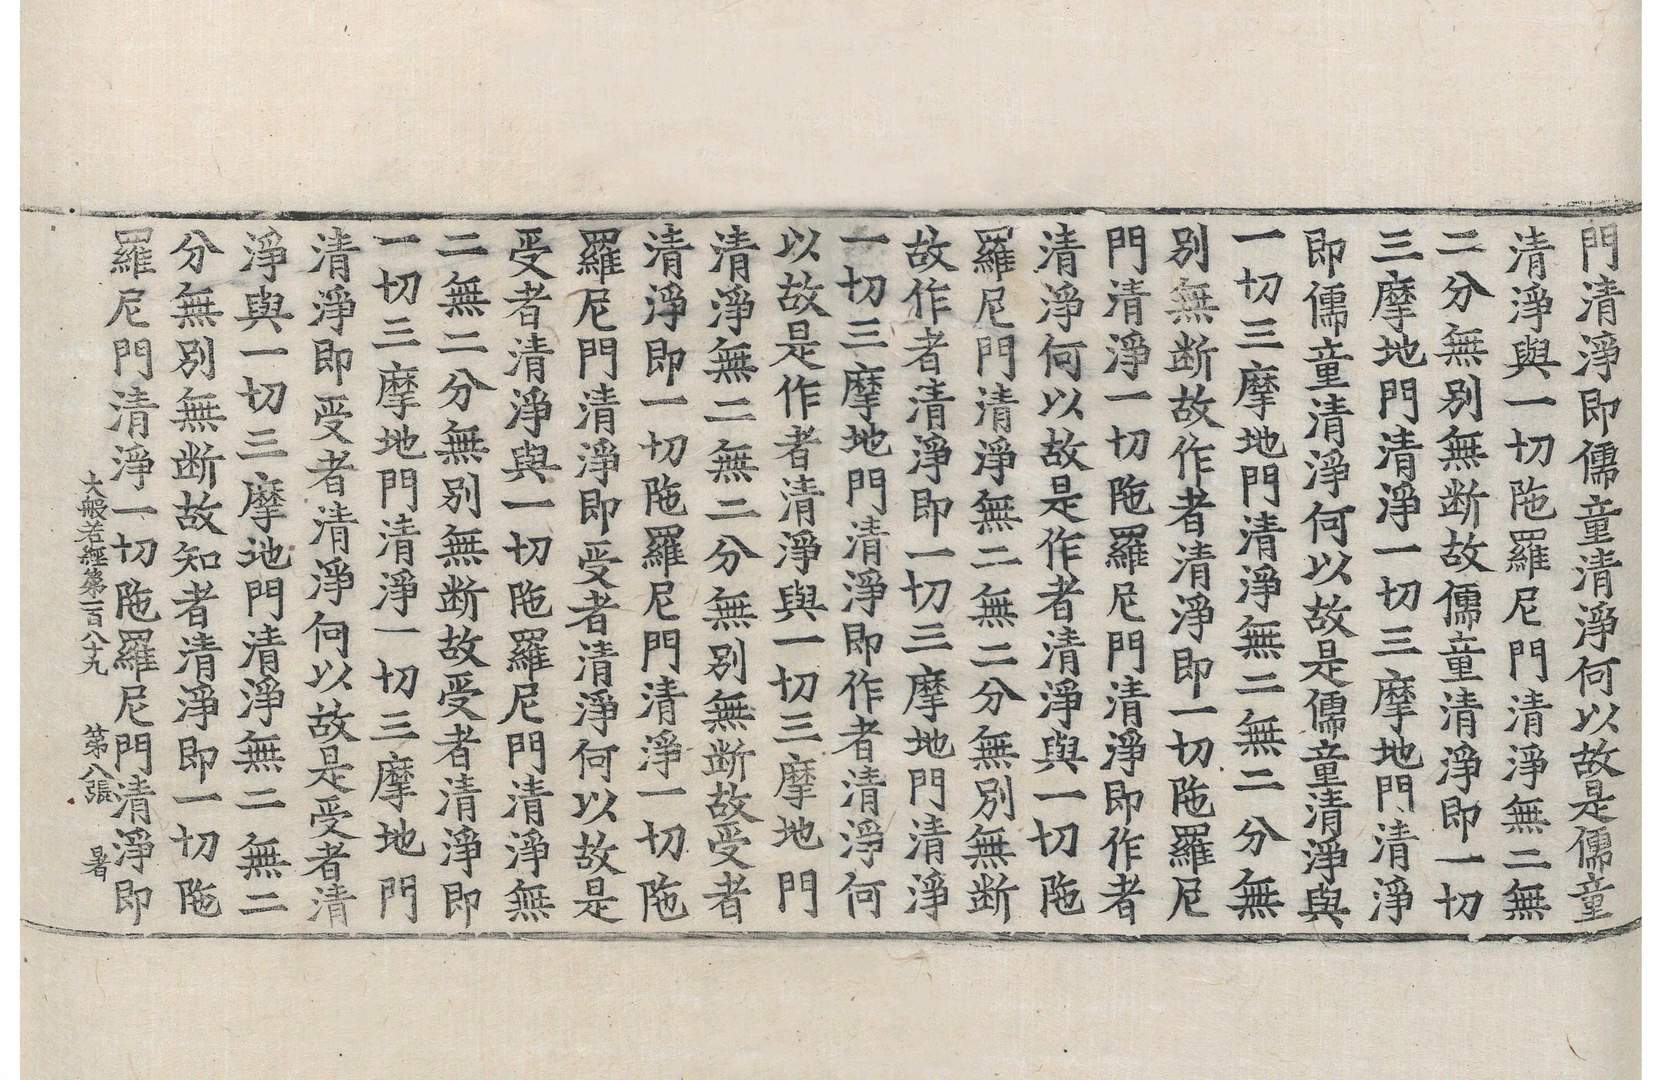 門清淨即儒童清淨何以故是儒童
清淨與一切陁羅尼門清淨無二無
二分無別無断故儒童清淨即一切
三摩地門清淨一切三摩地門清淨
即儒童清淨何以故是儒童清淨與
一切三摩地門清淨無二無二分無
別無断故作者清淨即一切陁羅尼
門清淨一切陁羅尼門清淨即作者
清淨何以故是作者清淨與一切陁
羅尼門清淨無二無二分無別無断
故作者清淨即一切三摩地門清淨
一切三摩地門清淨即作者清淨何
以故是作者清淨與一切三摩地門
清淨無二無二分無別無断故受者
清淨即一切陁羅尼門清淨一切陁
羅尼門清淨即受者清淨何以故是
受者清淨與一切陁羅尼門清淨無
二無二分無別無断故受者清淨即
一切三摩地門清淨一切三摩地門
清淨即受者清淨何以故是受者清
淨與一切三摩地門清淨無二無二
分無別無断故知者清淨即一切陁
羅尼門清淨一切陁羅尼門清淨即
大般若經第一百八十九 第八張 暑